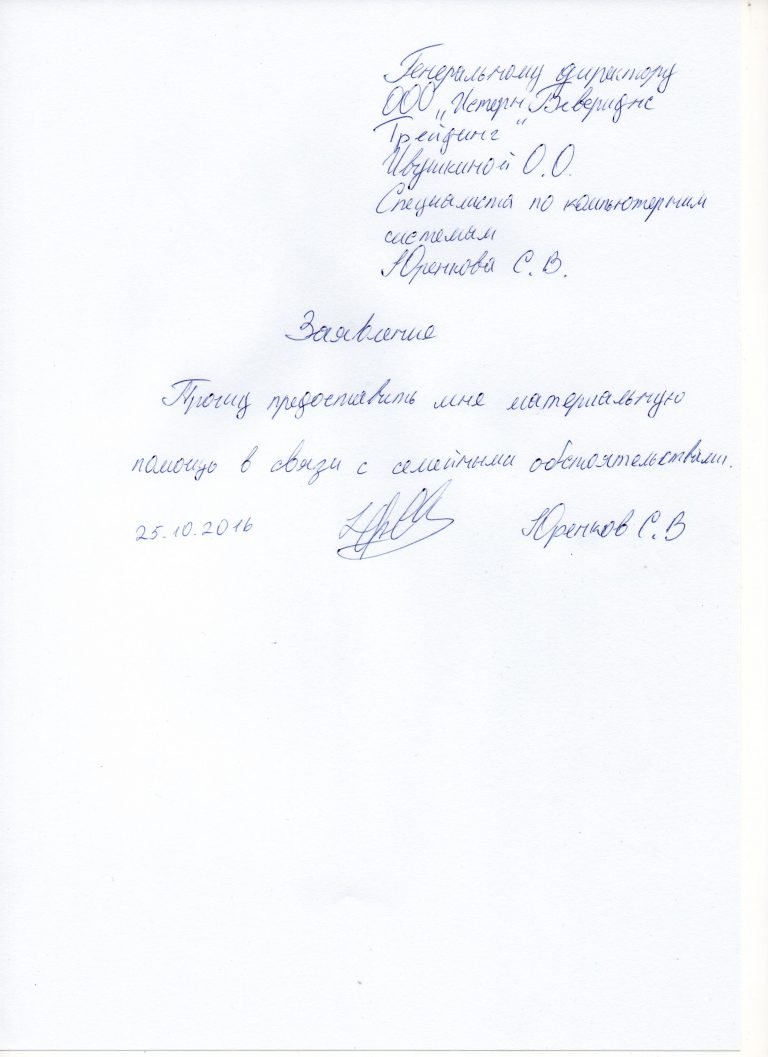 Генеральному директору
ООО „Истерн Бевериджс
Трейдинг"
Ивушкиной О.О.
Специалиста по компьютерным
системам
Юренкова С.В.
Заявление
Прошу предоставить мне материальную
помощь в связи с семейными обстоятельствами.
25.10.2016 Юренков С.В